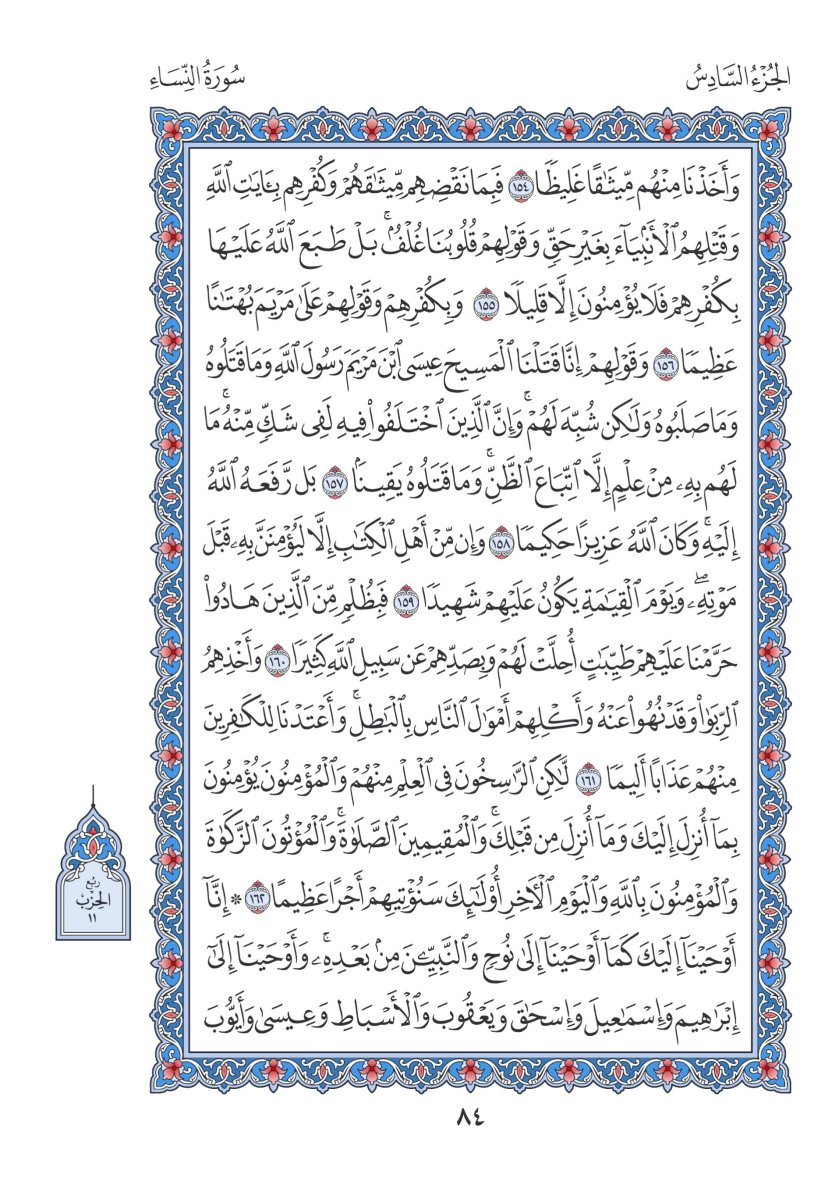 الجُزْءُ السَّادِسُ
سُورَةُ النِّسَاءِ
وَأَخَذْنَا مِنْهُم مِّيثَٰقًا غَلِيظًا ١٥٤ فَبِمَا نَقْضِهِم مِّيثَٰقَهُمْ وَكُفْرِهِم بِـَٔايَٰتِ ٱللَّهِ
وَقَتْلِهِمُ ٱلْأَنۢبِيَآءَ بِغَيْرِ حَقٍّ وَقَوْلِهِمْ قُلُوبُنَا غُلْفٌۢ ۚ بَلْ طَبَعَ ٱللَّهُ عَلَيْهَا
بِكُفْرِهِمْ فَلَا يُؤْمِنُونَ إِلَّا قَلِيلًا ١٥٥ وَبِكُفْرِهِمْ وَقَوْلِهِمْ عَلَىٰ مَرْيَمَ بُهْتَٰنًا
عَظِيمًا ١٥٦ وَقَوْلِهِمْ إِنَّا قَتَلْنَا ٱلْمَسِيحَ عِيسَى ٱبْنَ مَرْيَمَ رَسُولَ ٱللَّهِ وَمَا قَتَلُوهُ
وَمَا صَلَبُوهُ وَلَٰكِن شُبِّهَ لَهُمْ ۚ وَإِنَّ ٱلَّذِينَ ٱخْتَلَفُوا۟ فِيهِ لَفِى شَكٍّ مِّنْهُ ۚ مَا
لَهُم بِهِۦ مِنْ عِلْمٍ إِلَّا ٱتِّبَاعَ ٱلظَّنِّ ۚ وَمَا قَتَلُوهُ يَقِينًۢا ١٥٧ بَل رَّفَعَهُ ٱللَّهُ
إِلَيْهِ ۚ وَكَانَ ٱللَّهُ عَزِيزًا حَكِيمًا ١٥٨ وَإِن مِّنْ أَهْلِ ٱلْكِتَٰبِ إِلَّا لَيُؤْمِنَنَّ بِهِۦ قَبْلَ
مَوْتِهِۦ ۖ وَيَوْمَ ٱلْقِيَٰمَةِ يَكُونُ عَلَيْهِمْ شَهِيدًا ١٥٩ فَبِظُلْمٍ مِّنَ ٱلَّذِينَ هَادُوا۟
حَرَّمْنَا عَلَيْهِمْ طَيِّبَٰتٍ أُحِلَّتْ لَهُمْ وَبِصَدِّهِمْ عَن سَبِيلِ ٱللَّهِ كَثِيرًا ١٦٠ وَأَخْذِهِمُ
ٱلرِّبَوٰا۟ وَقَدْ نُهُوا۟ عَنْهُ وَأَكْلِهِمْ أَمْوَٰلَ ٱلنَّاسِ بِٱلْبَٰطِلِ ۚ وَأَعْتَدْنَا لِلْكَٰفِرِينَ
مِنْهُمْ عَذَابًا أَلِيمًا ١٦١ لَّٰكِنِ ٱلرَّٰسِخُونَ فِى ٱلْعِلْمِ مِنْهُمْ وَٱلْمُؤْمِنُونَ يُؤْمِنُونَ
بِمَآ أُنزِلَ إِلَيْكَ وَمَآ أُنزِلَ مِن قَبْلِكَ ۚ وَٱلْمُقِيمِينَ ٱلصَّلَوٰةَ ۚ وَٱلْمُؤْتُونَ ٱلزَّكَوٰةَ
وَٱلْمُؤْمِنُونَ بِٱللَّهِ وَٱلْيَوْمِ ٱلْءَاخِرِ أُو۟لَٰٓئِكَ سَنُؤْتِيهِمْ أَجْرًا عَظِيمًا ١٦٢ * إِنَّآ
أَوْحَيْنَآ إِلَيْكَ كَمَآ أَوْحَيْنَآ إِلَىٰ نُوحٍ وَٱلنَّبِيِّـۧنَ مِنۢ بَعْدِهِۦ ۚ وَأَوْحَيْنَآ إِلَىٰٓ
إِبْرَٰهِيمَ وَإِسْمَٰعِيلَ وَإِسْحَٰقَ وَيَعْقُوبَ وَٱلْأَسْبَاطِ وَعِيسَىٰ وَأَيُّوبَ
رُبْعُ
الحِزْبِ
١١
٨٤